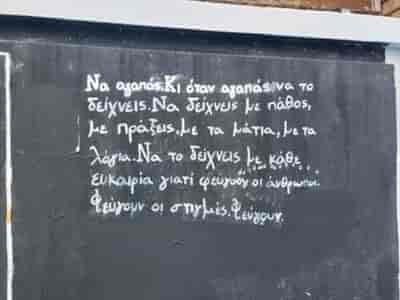 Να αγαπάς. Κι όταν αγαπάς να το
δείχνεις. Να δείχνεις με πάθος,
με πράξεις, με τα μάτια, με τα
λόγια. Να το δείχνεις με κάθε
ευκαιρία γιατί φεύγουν οι άνθρωποι.
Φεύγουν οι στιγμές. Φεύγουν.